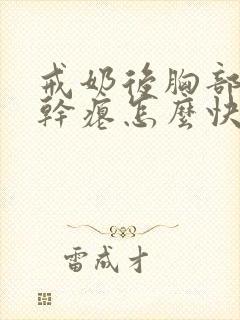 戒奶後胸部
幹癟怎麼快
雷成才